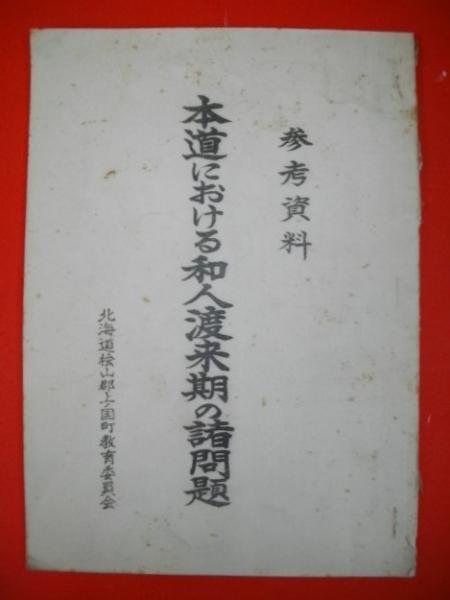 参考資料
本道における和人渡来期の諸問題
北海道桧山郡上ノ国町教育委員会